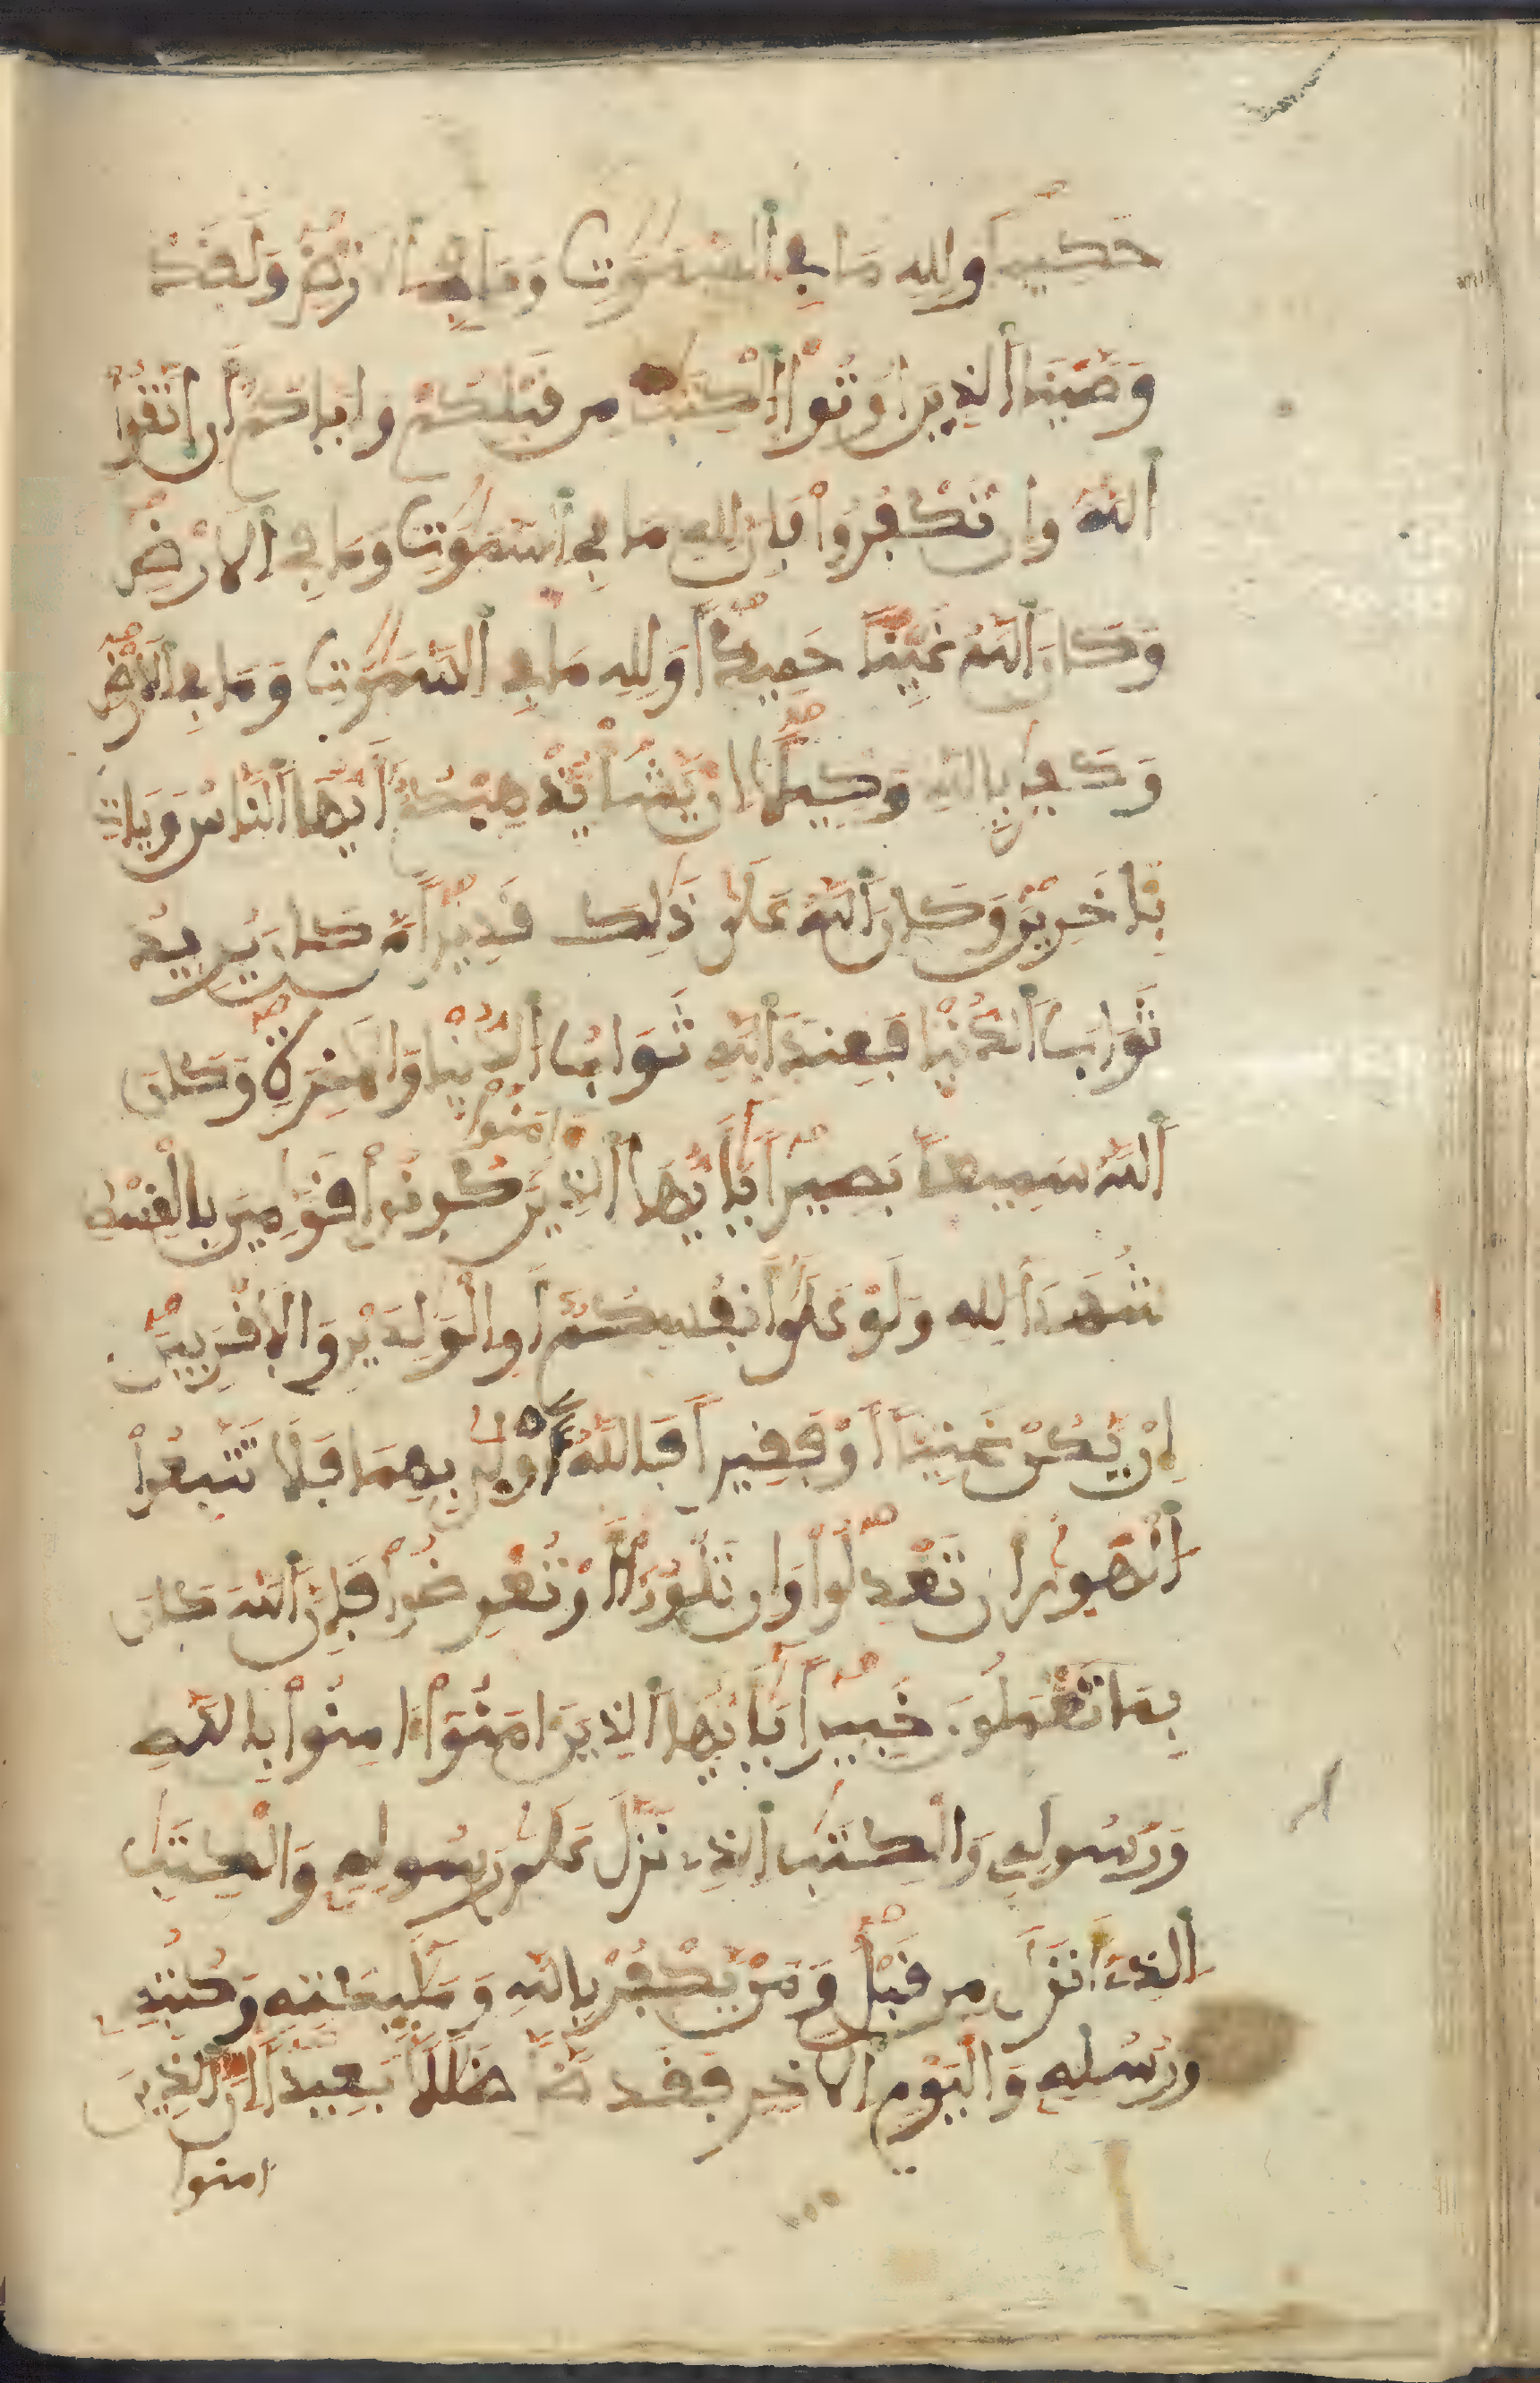 حَكِيماً وَلِلهِ مَا فِي اِلسَّمَٰوَٰتِ وَمَا فِي اِلَارْضِ وَلَقَدْ
وَصَّيْنَا اَلذِينَ أُوتُواْ اُلْكِتَٰبَ مِن قَبْلِكُمْ وَإِيَّاكُمْ أَنِ اِتَّقُواْ
اُللَّهَ وَإِن تَكْفُرُواْ فَإِنَّ لِلهِ مَا فِي اِلسَّمَٰوَٰتِ وَمَا فِي اِلَارْضِ
وَكَانَ اَللَّهُ غَنِيّاً حَمِيداً وَلِلهِ مَا فِي اِلسَّمَٰوَٰتِ وَمَا فِي اِلَارْضِ
وَكَفَىٰ بِاللَّهِ وَكِيلًا اِنْ يَّشَأْ يُذْهِبْكُمْ أَيُّهَا اَلنَّاسُ وَيَاتِ
بِـَٔاخَرِينَ وَكَانَ اَللَّهُ عَلَىٰ ذَٰلِكَ قَدِيراً مَّن كَانَ يُرِيدُ
ثَوَابَ اَلدُّنْيَا فَعِندَ اَللَّهِ ثَوَابُ اُلدُّنْيَا وَالَاخِرَةِ وَكَانَ
اَللَّهُ سَمِيعاً بَصِيراً يَٰأَيُّهَا اَلذِينَ ءَامَنُواْ كُونُواْ قَوَّٰمِينَ بِالْقِسْطِ
شُهَدَآءَ لِلهِ وَلَوْ عَلَىٰ أَنفُسِكُمْ أَوِ اِلْوَٰلِدَيْنِ وَالَاقْرَبِينَ
إِنْ يَّكُنْ غَنِيّاً اَوْ فَقِيراً فَاللَّهُ أَوْلَىٰ بِهِمَا فَلَا تَتَّبِعُواْ
اُلْهَوَىٰ أَن تَعْدِلُواْ وَإِن تَلْوُۥٓاْ أَوْ تُعْرِضُواْ فَإِنَّ اَللَّهَ كَانَ
بِمَا تَعْمَلُونَ خَبِيراً يَٰأَيُّهَا اَلذِينَ ءَامَنُواْ ءَامِنُواْ بِاللَّهِ
وَرَسُولِهِ وَالْكِتَٰبِ اِلذِي نَزَّلَ عَلَىٰ رَسُولِهِ وَالْكِتَٰبِ
اِلذِي أَنزَلَ مِن قَبْلُ وَمَنْ يَّكْفُرْ بِاللَّهِ وَمَلَٰئِكَتِهِ وَكُتُبِهِ
وَرُسُلِهِ وَالْيَوْمِ اِلَاخِرِ فَقَد ضَّلَّ ضَلَٰلًا بَعِيداً اِنَّ اَلذِينَ
امنوا